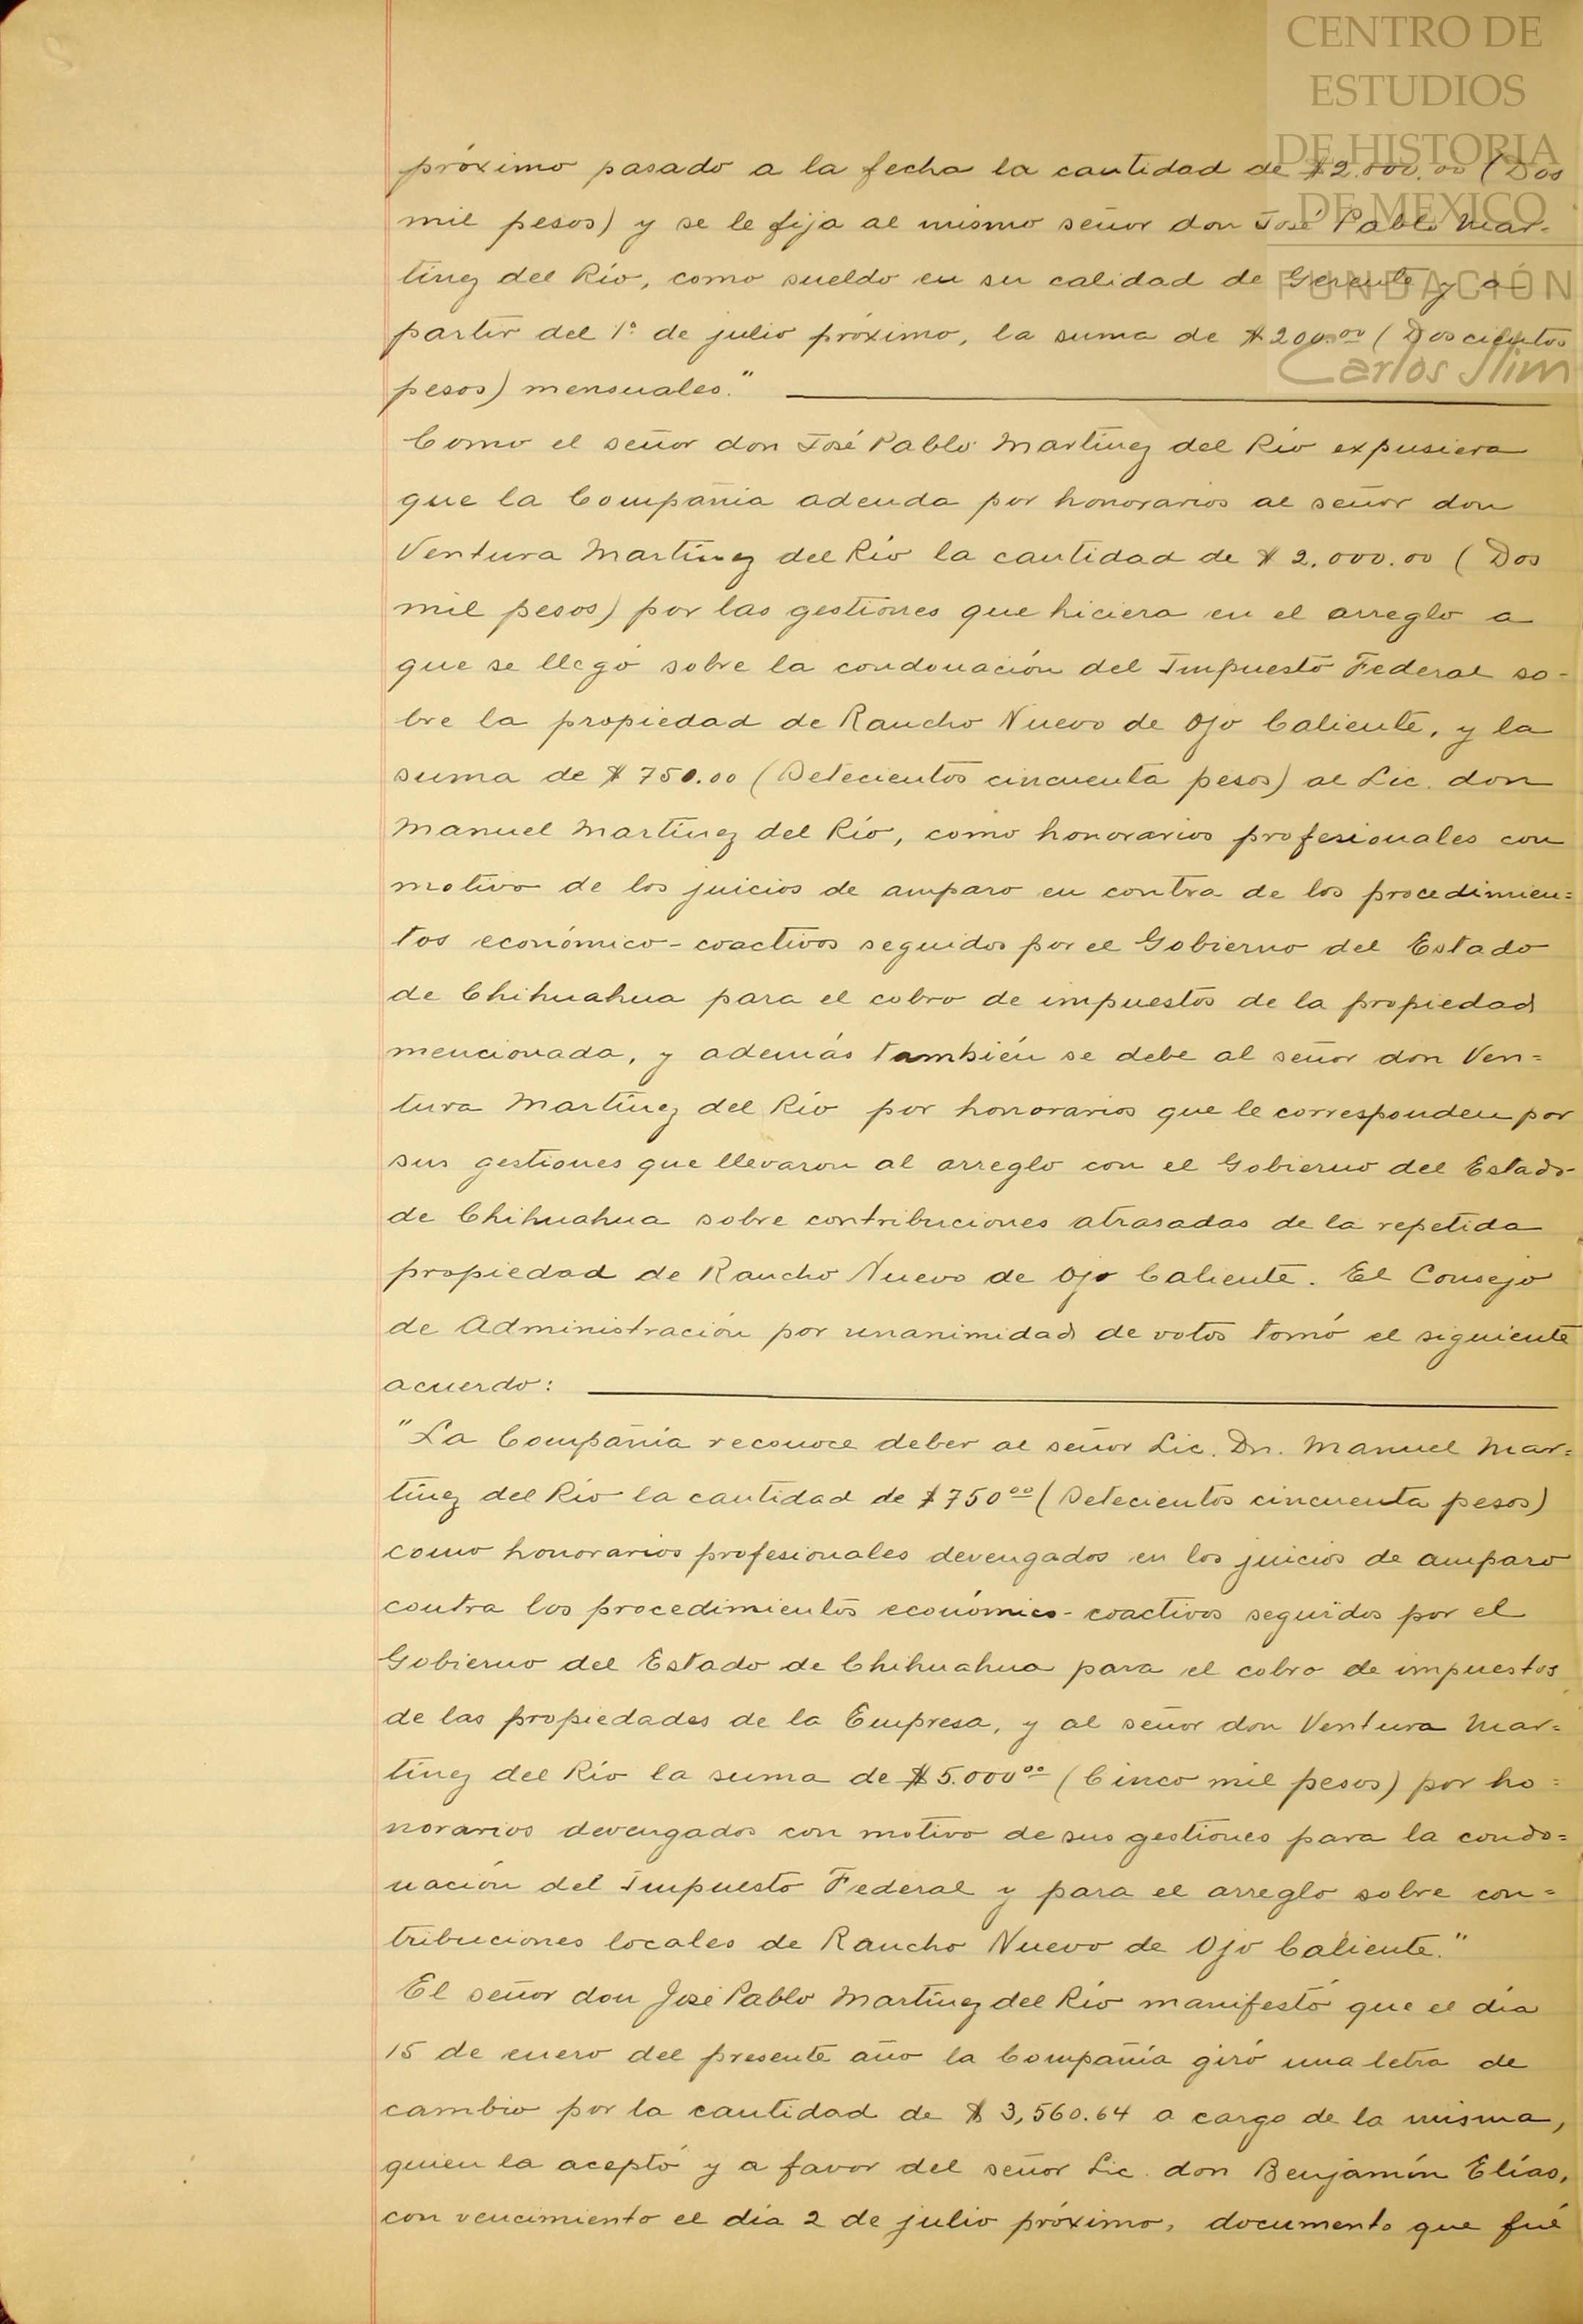 CENTRO DE
ESTUDIOS
DE HISTORIA
DE MEXICO
FUNDACIÓN
Carlos Slim
próximo pasado a la fecha la cantidad de $2.000.00 (Dos
mil pesos) y se le fija al mismo señor don José Pablo Mar-
tínez del Río, como sueldo en su calidad de Gerente y a
partir del 1º de julio próximo, la suma de $200.00 (Doscientos
pesos) mensuales."
Como el señor don José Pablo Martínez del Río expusiera
que la Compañía adeuda por honorarios al señor don
Ventura Martínez del Río la cantidad de $2.000.00 (Dos
mil pesos) por las gestiones que hiciera en el arreglo a
que se llegó sobre la condonación del Impuesto Federal so-
bre la propiedad de Rancho Nuevo de Ojo Caliente, y la
suma de $750.00 (Setecientos cincuenta pesos) al Lic. don
Manuel Martínez del Río, como honorarios profesionales con
motivo de los juicios de amparo en contra de los procedimien=
tos económico-coactivos seguidos por el Gobierno del Estado
de Chihuahua para el cobro de impuestos de la propiedad
mencionada, y además también se debe al señor don Ven=
tura Martínez del Río por honorarios que le corresponden por
sus gestiones que llevaron al arreglo con el Gobierno del Estado
de Chihuahua sobre contribuciones atrasadas de la repetida
propiedad de Rancho Nuevo de Ojo Caliente. El Consejo
de Administración por unanimidad de votos tomó el siguiente
acuerdo:
"La Compañía reconoce deber al señor Lic. Dn. Manuel Mar=
tínez del Río la cantidad de $750.00 (Setecientos cincuenta pesos)
como honorarios profesionales devengados en los juicios de amparo
contra los procedimientos económico-coactivos seguidos por el
Gobierno del Estado de Chihuahua para el cobro de impuestos
de las propiedades de la Empresa, y al señor don Ventura Mar=
tínez del Río la suma de $5.000.00 (Cinco mil pesos) por ho=
norarios devengados con motivo de sus gestiones para la condo=
nación del Impuesto Federal y para el arreglo sobre con=
tribuciones locales de Rancho Nuevo de Ojo Caliente."
El señor don José Pablo Martínez del Río manifestó que el día
15 de enero del presente año la Compañía giró una letra de
cambio por la cantidad de $3,560.64 a cargo de la misma,
quien la aceptó y a favor del señor Lic. don Benjamín Elías,
con vencimiento el día 2 de julio próximo, documento que fué